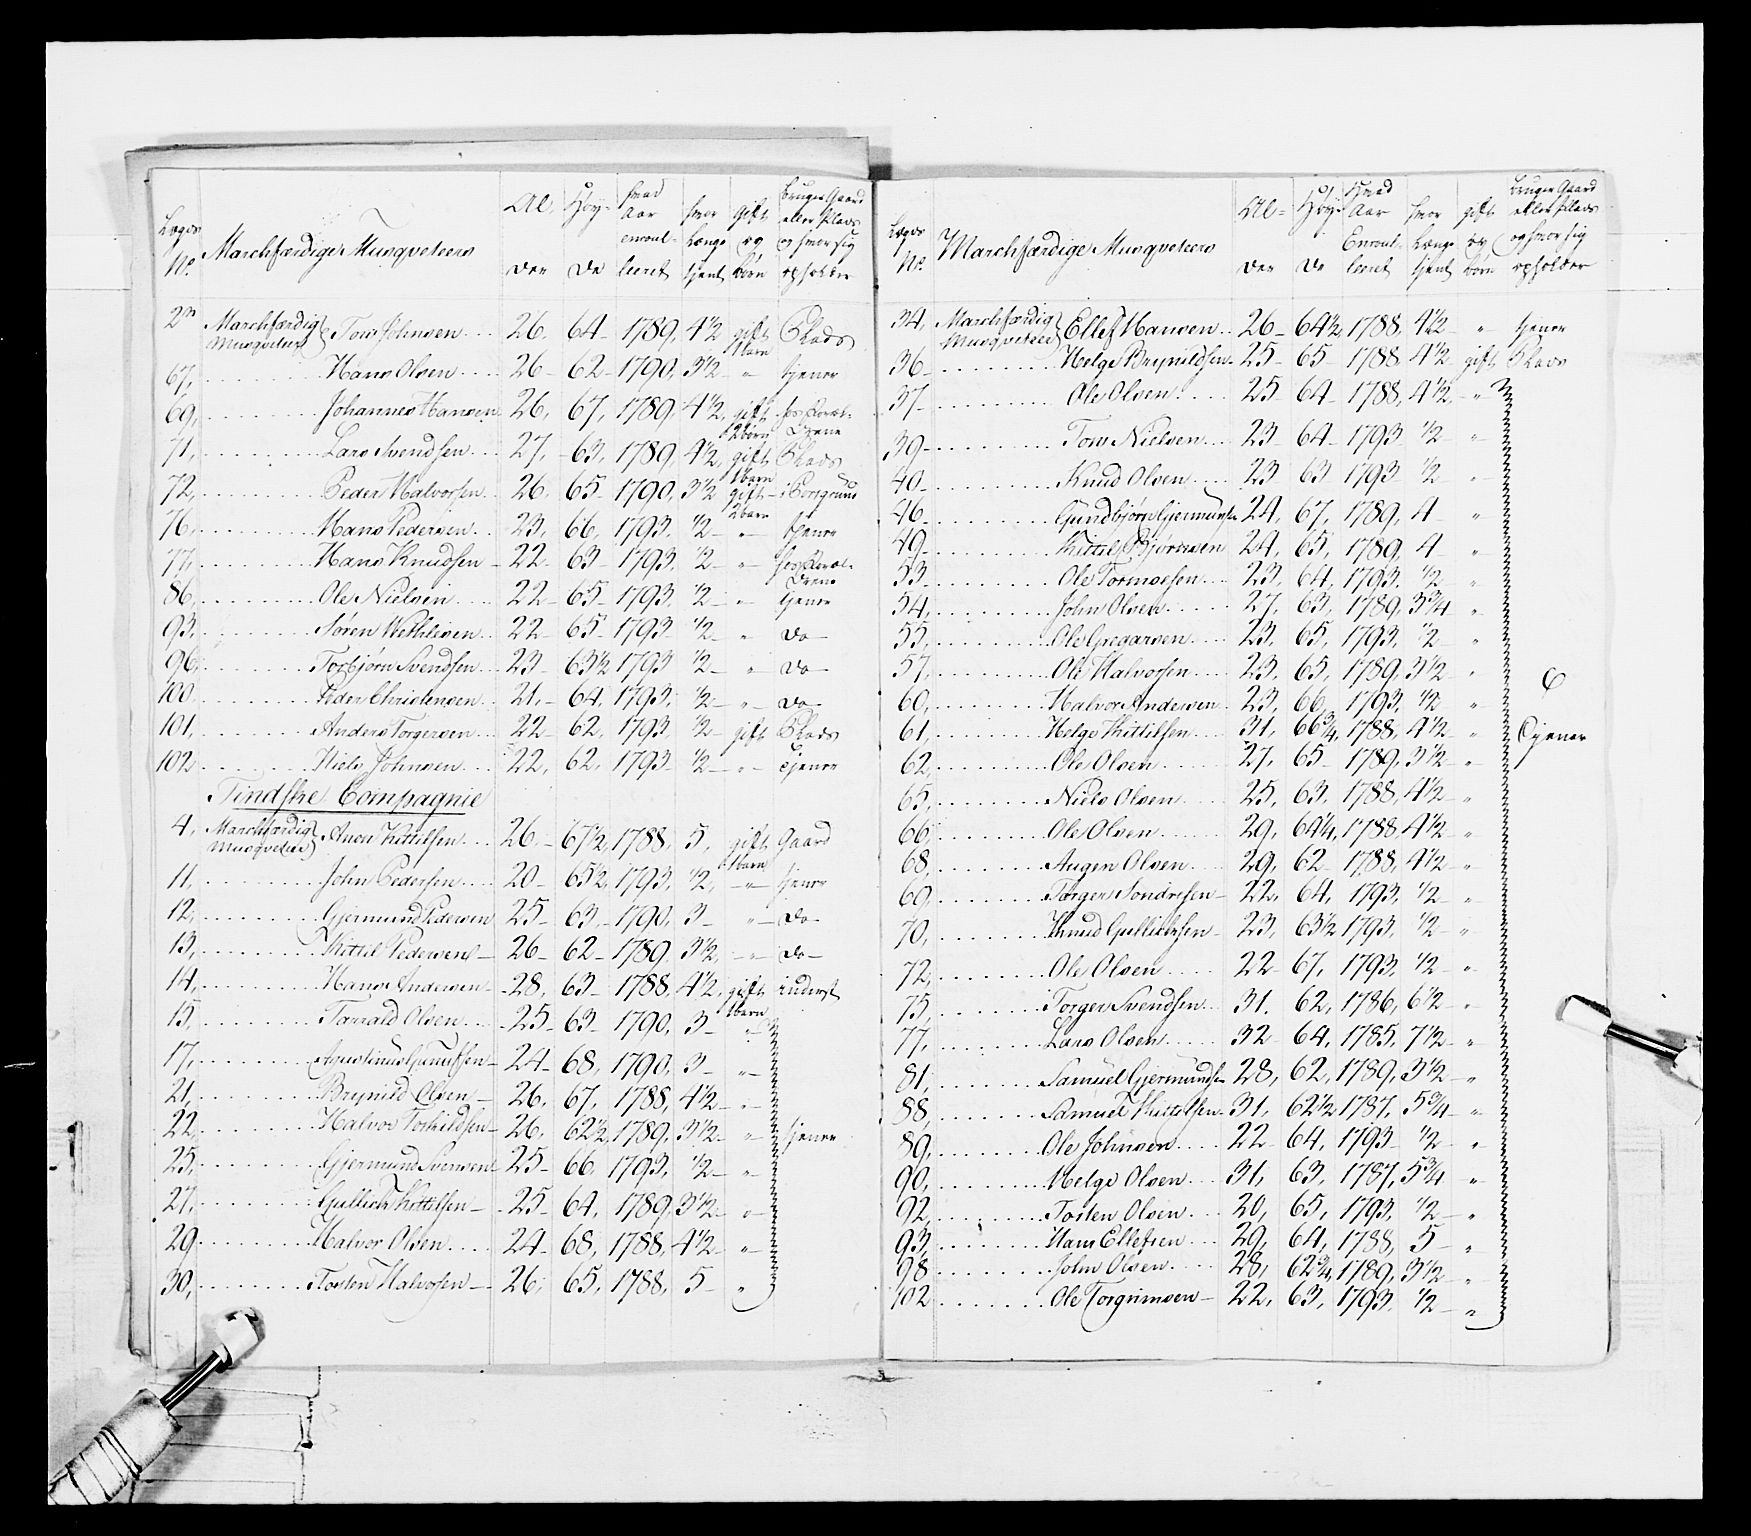 Lægds No. Marchfærdige Musqveteers Alder Høyde hvad Aar enroulleeret hvor længe tjent gift og børn bruger Gaard eller Plads og hvor sig opholder
Marchfærdig Musqveteer Tow Johnsen 26 64 1789 4 1/2 gift 1 barn Plads
67 Hans Olsen 26 62 1790 3 1/2 " tjener
69 Johannes Hansen 26 67 1789 4 1/2 gift 2 børn
71 Lars Svendsen 27 63 1789 4 1/2 gift 1 barn Plads
72 Peder Halvorsen 26 65 1790 3 1/2 gift 2 børn i Porsgrund
76 Hans Pedersen 23 66 1793 1/2 " tjener
77 Hans Knudsen 22 63 1793 1/2 "
86 Ole Nielsen 22 65 1793 1/2 " tjener
93 Søren Wethlesen 22 65 1793 1/2 " do
96 Torbjørn Svendsen 23 63 1/2 1793 1/2 " do
100 Peder Christensen 21 64 1793 1/2 " do
101 Anders Torgersen 22 62 1793 1/2 gift Plads
102 Niels Johnsen 22 62 1793 1/2 " tjener
Tindske Compagnie
4 Marchfærdig Musqveteer Aven Kittilsen 26 67 1/2 1788 5 gift 1 barn Gaard
11 John Pedersen 20 65 1/2 1793 1/2 " tjener
12 Gjermund Pedersen 25 63 1790 3 " do
13 Kittil Pedersen 26 62 1789 3 1/2 " do
14 Hans Andersen 28 63 1788 4 1/2 gift 1 barn inderst
15 Tarrald Olsen 25 63 1790 3 "
17 Agustinus 24 68 1790 3 "
21 Brynild Olsen 26 67 1788 4 1/2 "
22 Halvor Torkildsen 26 62 1/2 1789 3 1/2 " tjener
25 Gjermund Svensen 25 66 1793 1/2 "
27 Gullich Kittilsen 25 64 1789 3 1/2 "
29 Halvor Olsen 24 68 1788 4 1/2 "
30 Tosten Halvorsen 26 65 1788 5 "
Lægds No. Marchfærdige Musqveteers Alder Høyde Hvad Aar Enroulleeret hvor længe tjent gift og børn bruger Gaard eller Plads og hvor sig opholder
34 Marchfærdig Musqveteer Ellef Hansen 26 64 1/2 1788 4 1/2 " tjener
36 Helge Brynildsen 25 65 1788 4 1/2 gift Plads
37 Ole Olsen 25 64 1788 4 1/2 "
39 Tow Nielsen 23 64 1793 1/2 "
40 Knud Olsen 23 63 1793 1/2 "
46 Gundbjørn Gjermundsen 24 67 1789 4 "
49 Kittil Bjørnsen 24 65 1789 4 "
53 Ole Tormoesen 23 64 1793 1/2 "
54 John Olsen 27 63 1789 3 3/4 "
55 Ole Gregarsen 23 65 1793 1/2 "
57 Ole Halvorsen 23 65 1789 3 1/2 "
60 Halvor Andersen 23 66 1793 1/2 "
61 Helge Kittilsen 31 66 3/4 1788 4 1/2 " Tjener
62 Ole Olsen 27 65 1789 3 1/2 "
65 Niels Olsen 25 63 1788 4 1/2 "
66 Ole Olsen 29 64 1/4 1788 4 1/2 "
68 Augen Olsen 29 62 1788 4 1/2 "
69 Torger Sondresen 22 64 1793 1/2 "
70 Knud Gullichsen 23 63 1/2 1793 1/2 "
72 Ole Olsen 22 67 1793 1/2 "
75 Torger Svendsen 31 62 1786 6 1/2 "
77 Lars Olsen 32 64 1785 7 1/2 "
81 Samuel Gjermundsen 28 62 1789 3 1/2 "
88 Samuel Kittilsen 31 62 1/2 1787 5 3/4 "
89 Ole Johnsen 22 64 1793 1/2 "
90 Helge Olsen 31 63 1787 5 3/4 "
92 Tosten Olsen 20 65 1793 1/2 "
93 Hans Ellefsen 29 64 1788 5 "
98 John Olsen 28 62 3/4 1789 3 1/2 "
102 Ole Torgrimsen 22 63 1793 1/2 "